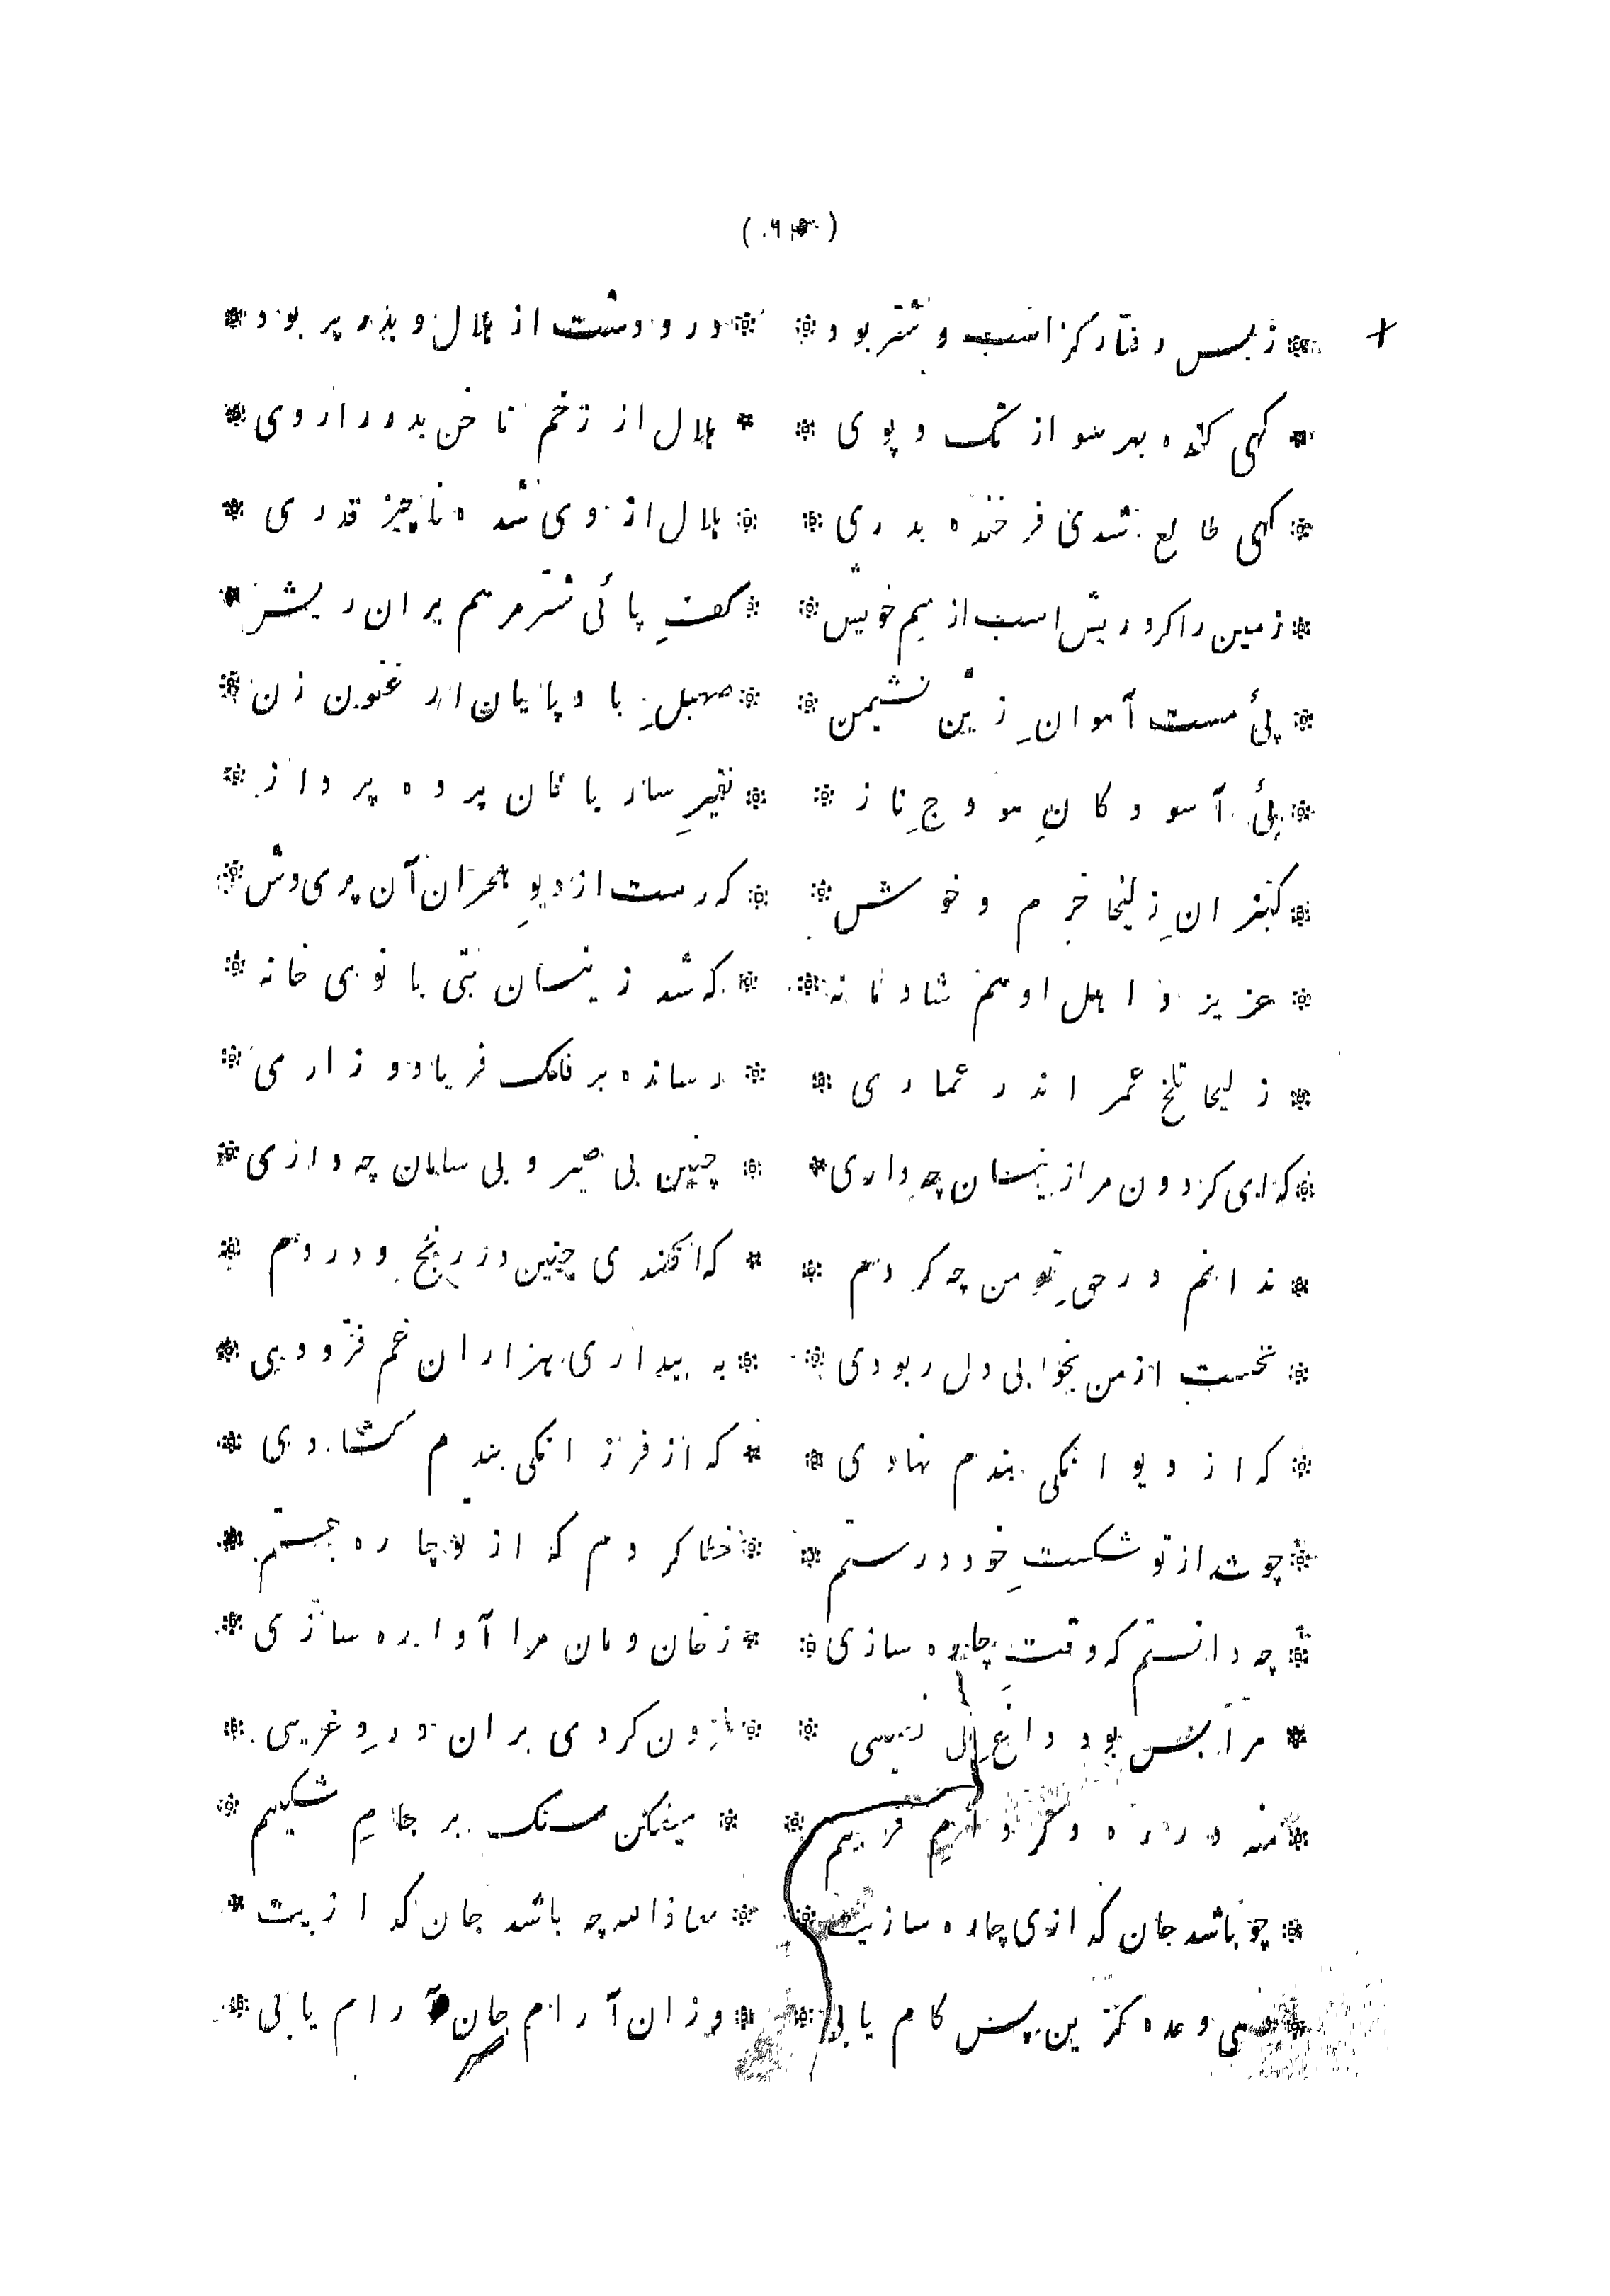 زبس رفتار کز اسب و شتر بود * در و دشت از هلال و بدر پر بود
گهی کنده بهر سو از تگ و پوی * هلال از زخم ناخن بدر را روی
گهی طالع شدی فرخنده بدری * هلال از وی شده ناچیز قدری
زمین را کرد ریش اسب از سم خویش * کفِ پائی شتر مرهم بران ریش
پئ مست آهوانِ زین نشیمن * صهیلِ باد پایان ارغنون زن
پئ آسودگانِ هودجِ ناز * نفیرِ ساربانان پرده پرداز
کنیزانِ زلیخا خرم و خوش * که رست از دیوِ هجران آن پری وش
عزیز و اهل او هم شادمانه * که شد زینسان بتی بانوی خانه
زلیخا تلخ عمر اندر عماری * رسانده بر فلک فریاد و زاری
که ای گردون مرا زینسان چه داری * چنین بی صبر و بی سامان چه داری
ندانم در حقِ تو من چه کردم * که افکندی چنین در رنج و دردم
نخست از من بخوابی دل ربودی * به بیداری هزاران غم فزودی
که از دیوانگی بندم نهادی * که از فرزانگی بندم گشادی
چو شد از تو شکستِ خود درستم * خطا کردم که از تو چاره جستم
چه دانستم که وقتِ چاره سازی * زخان و مان مرا آواره سازی
مرا بس بود داغِ بی نصیبی * فزون کردی بران دردِ غریبی
منه در ره دگر دامِ فریبم * میفکن سنگ بر جامِ شکیبم
چو باشد جان گدازی چاره سازیت * معاذالله چه باشد جان گدازیت
دهی وعده کزین پس کام یابی * وزان آرام جان آرام یابی